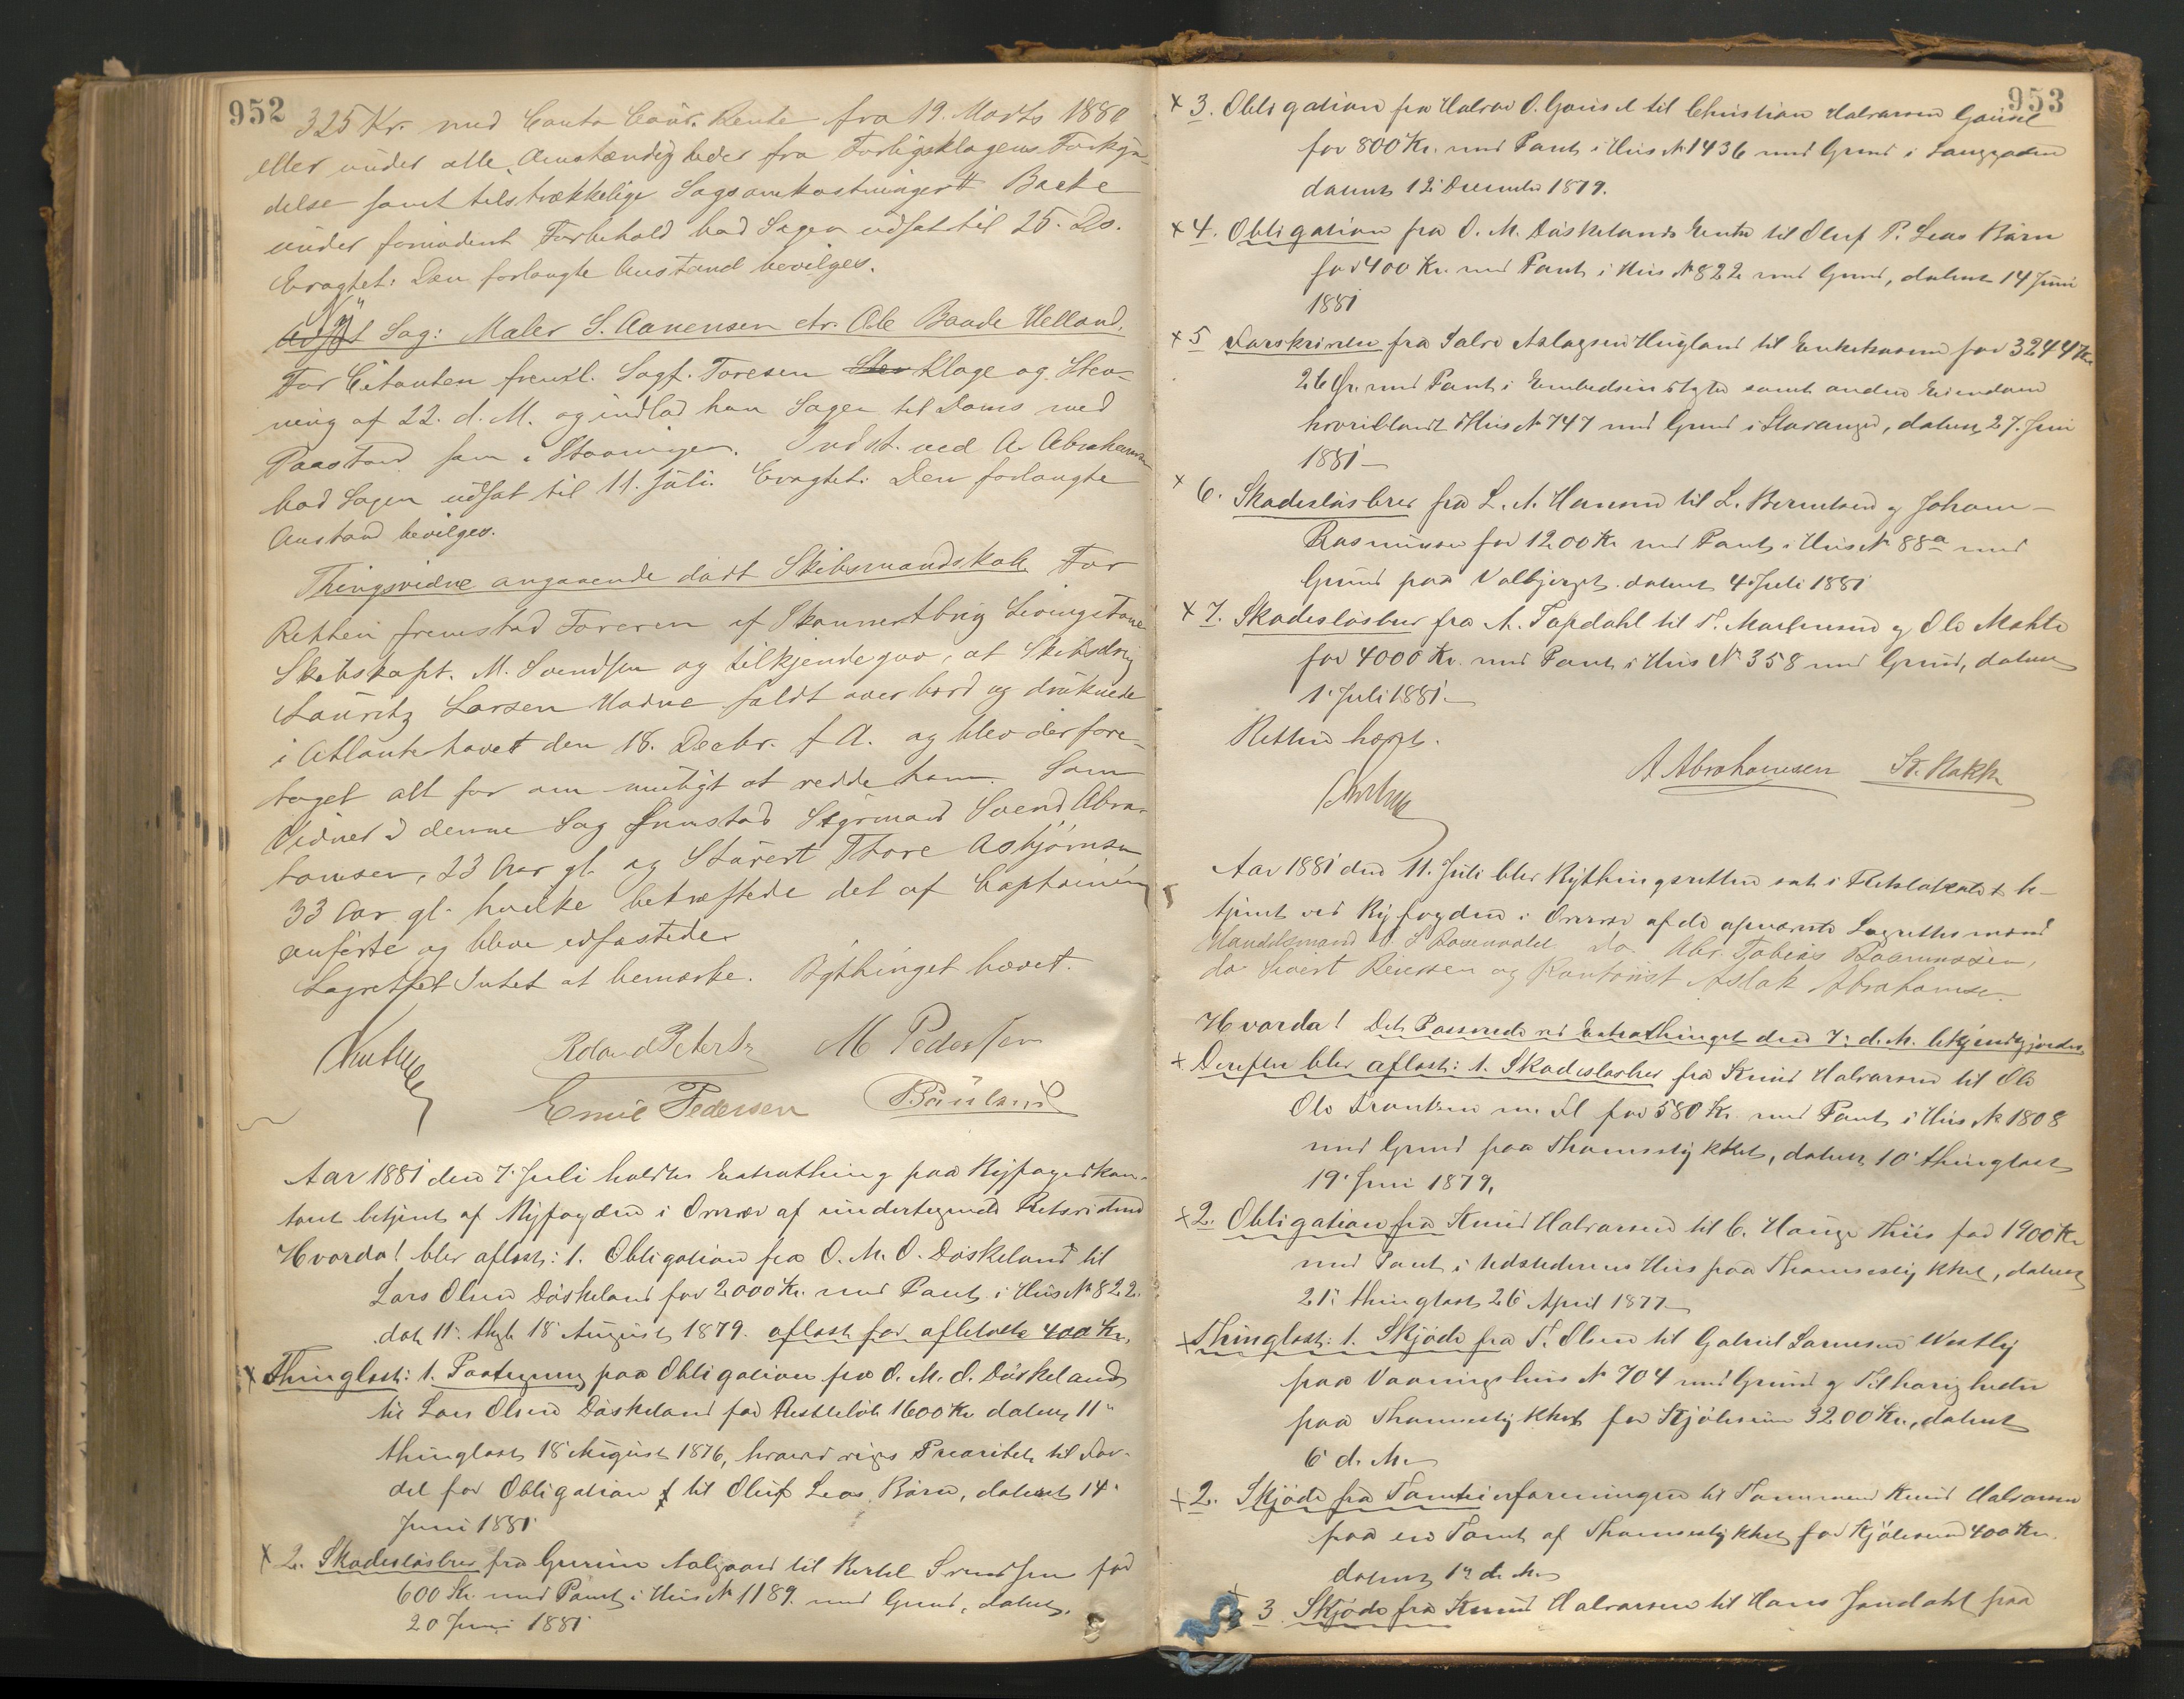 952
325 Kr. med Conto Cour. Rente fra 19. Marts 1880
eller under alle Omstændigheder fra Forligsklagens Forkyn-
delse samt tilstrækkelige Sagsomkostninger. Backe
under fornødent Forbehold bad Sagen udsat til 25. Ds.
Eragtet: Den forlangte Anstand bevilges.
Ny Sag: Maler S. Aanensen ctr. Ole Baade Helland.
For Citanten freml. Sagf. Toresen Klage og Stev-
ning af 22. d. M. og indlod han Sagen til Doms med
Paastand som i Stevningen. Indst. ved A. Abrahamsen
bad Sagen udsat til 11. Juli. Eragtet: Den forlangte
Anstand bevilges.
Thingsvidne angaaende dødt Skibsmandskab. For
Retten fremstod Føreren af Skonnertbrig Livingstone
Skibskapt. M. Svendsen og tilkjendegav, at Skibsdreng
Lauritz Larsen Hadne faldt overbord og druknede
i Atlanterhavet den 18. Decbr. f. A. og blev der fore-
taget alt for om muligt at redde ham. Som
Vidner i denne Sag fremstod Styrmand Svend Abra-
hamsen, 23 Aar gl. og Stuert Thore Asbjørnsen
33 Aar gl. hvilke bekræftede det af Captainen
anførte og bleve edfæstede
Lagrettet Intet at bemærke. Bythinget hævet.
Roland Petersen M Pedersen
Emil Pedersen
Aar 1881 den 7. Juli holdtes Extrathing paa Byfogedkon-
toret betjent af Byfogden i Overvær af undertegnede Retsvidner
Hvorda! blev aflæst: 1. Obligation fra O. M. O. Døskeland til
Lars Olsen Døskeland for 2000 Kr. med Pant i Hus No 822.
dat. 11. thgl. 18 August 1879. aflæst for afbetalte 400 Kr.
x Thinglæst: 1. Paategning paa Obligation fra O. M. O. Døskeland
til Lars Olsen Døskeland for Restbeløb 1600 Kr. dateret 11.
thinglæst 18 August 1876, hvorved viges Prioritet til For-
del for Obligation til Oluf Leas Børn, dateret 14.
Juni 1881
x 2. Skadesløsbrev fra Aalgaard til Kertel Svendsen for
600 Kr. med Pant i Hus No 1189. med Grund, dateret
20 Juni 1881
953
x 3. Obligation fra Halvor O. Gausel til Christian Halvorsen Gausel
for 800 Kr. med Pant i Hus No 1436 med Grund i Langgaden
dateret 12 December 1879.
x 4. Obligation fra O. M. Døskelands Enke til Oluf P. Leas Børn
for 400 Kr. med Pant i Hus No 822 med Grund, dateret 14 Juni
1881
x 5 fra Salve Aslagsen Hugland til Enkekassen for 3244 Kr
26 Ør. med Pant i Embedsindtægter samt anden Eiendom
hvoriblandt Hus No 747 med Grund i Stavanger, dateret 27. Juni
1881
x 6. Skadesløsbrev fra L. A. Hansen til L. Berntsen og Johan
Rasmussen for 1200 Kr. med Pant i Hus No 88a med
Grund paa Valbjerget. dateret 4. Juli 1881
x 7. Skadesløsbrev fra A. Tapdahl til T. Mortensen og Ole
for 4000 Kr. med Pant i Hus No 358 med Grund, dateret
1. Juli 1881.
Retten hævet.
A Abrahamsen
Aar 1881 den 11. Juli blev Bythingsretten sat i Retslokalet be-
tjent ved Byfogden i Overvær af de opnævnte Lagrettesmænd
Handelsmand S Rosenvold do Abr. Tobias Rasmussen,
do Sivert Reiersen og Kontorist Aslak Abrahamsen
Hvorda! Det Passerede ved Extrathinget den 7. d. M. bekjendtgjordes.
x Derefter blev aflæst: 1. Skadesløsbrev fra Knud Halvorsen til Ole
Ole Trontsen m. Fl for 580 Kr. med Pant i Hus No 1808
med Grund paa Thomsestykket, dateret 10. thinglæst
19. Juni 1879.
x 2. Obligation fra Knud Halvorsen til C. Hauge Thiis for 1900 Kr
med Pant i Udstederens Hus paa Thomsestykket, dateret
21. thinglæst 26 April 1877
x Thinglæst: 1. Skjøde fra T. Olsen til Gabriel Samuelsen Westby
paa Vaaningshus No 704 med Grund og Tilhørigheder
paa Thomsestykket for Kjøbesum 3200 Kr., dateret
6. d. M.
x 2. Skjøde fra Tomteforeningen til Tømmermand Knud Halvorsen
paa en Tomt af Thomsestykket for Kjøbesum 400 Kr.
dateret 1. d. M.
x 3 Skjøde fra Knud Halvorsen til Hans Jondahl paa